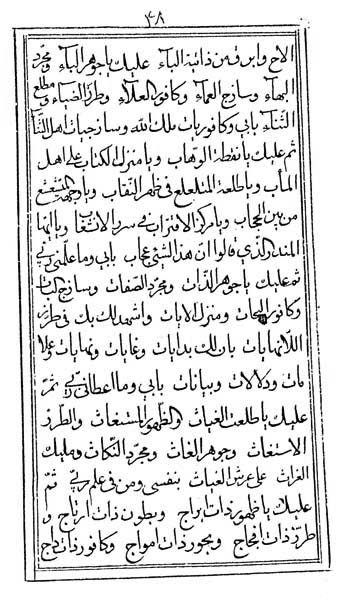 ٤٨
الاح وابرق من ذاتية البآء عليك ياجوهر البآء ومجرد
البهآء وسازج العمآء وكافور العلآء وطرز الضيآء ومطلع
الثنآء بابي وكافوريات ملك الله وسازجيات اهل الثنآ
ثم عليك يا نقطة الوهاب ويا منزل الكتاب على اهل
المأب ويا طلعة المتلعلع في ظهر النقاب ويا وجهة المتشعشع
من بين الحجاب ويا مركز الاقتراب في سر الانتخاب ويا ايها
المنذر الذي قالوا ان هذا لشئ عجاب بابي وما علمني ربي
ثم عليك يا جوهر الذات ومجرد الصفات وسازج
وكافور ومنزل الايات واشهد لك بك في طرز
اللانهايات بان لك بدايات وغايات ونهايات وعلا
مات ودلالات وبيانات بابي وما اعطاني ربي ثم
عليك يا طلعت الغياث والظهور المستغاث والطرز
الاستغاث وجوهر الغاث ومجرد النكاث ومليك
الغراث على عرش الغياث بنفسي ومن في علم ربي ثم
عليك يا ظهور ذات ابراج وبطون ذات ارتاج و
طرز ذات افجاج ومجور ذات امواج وكافور ذات